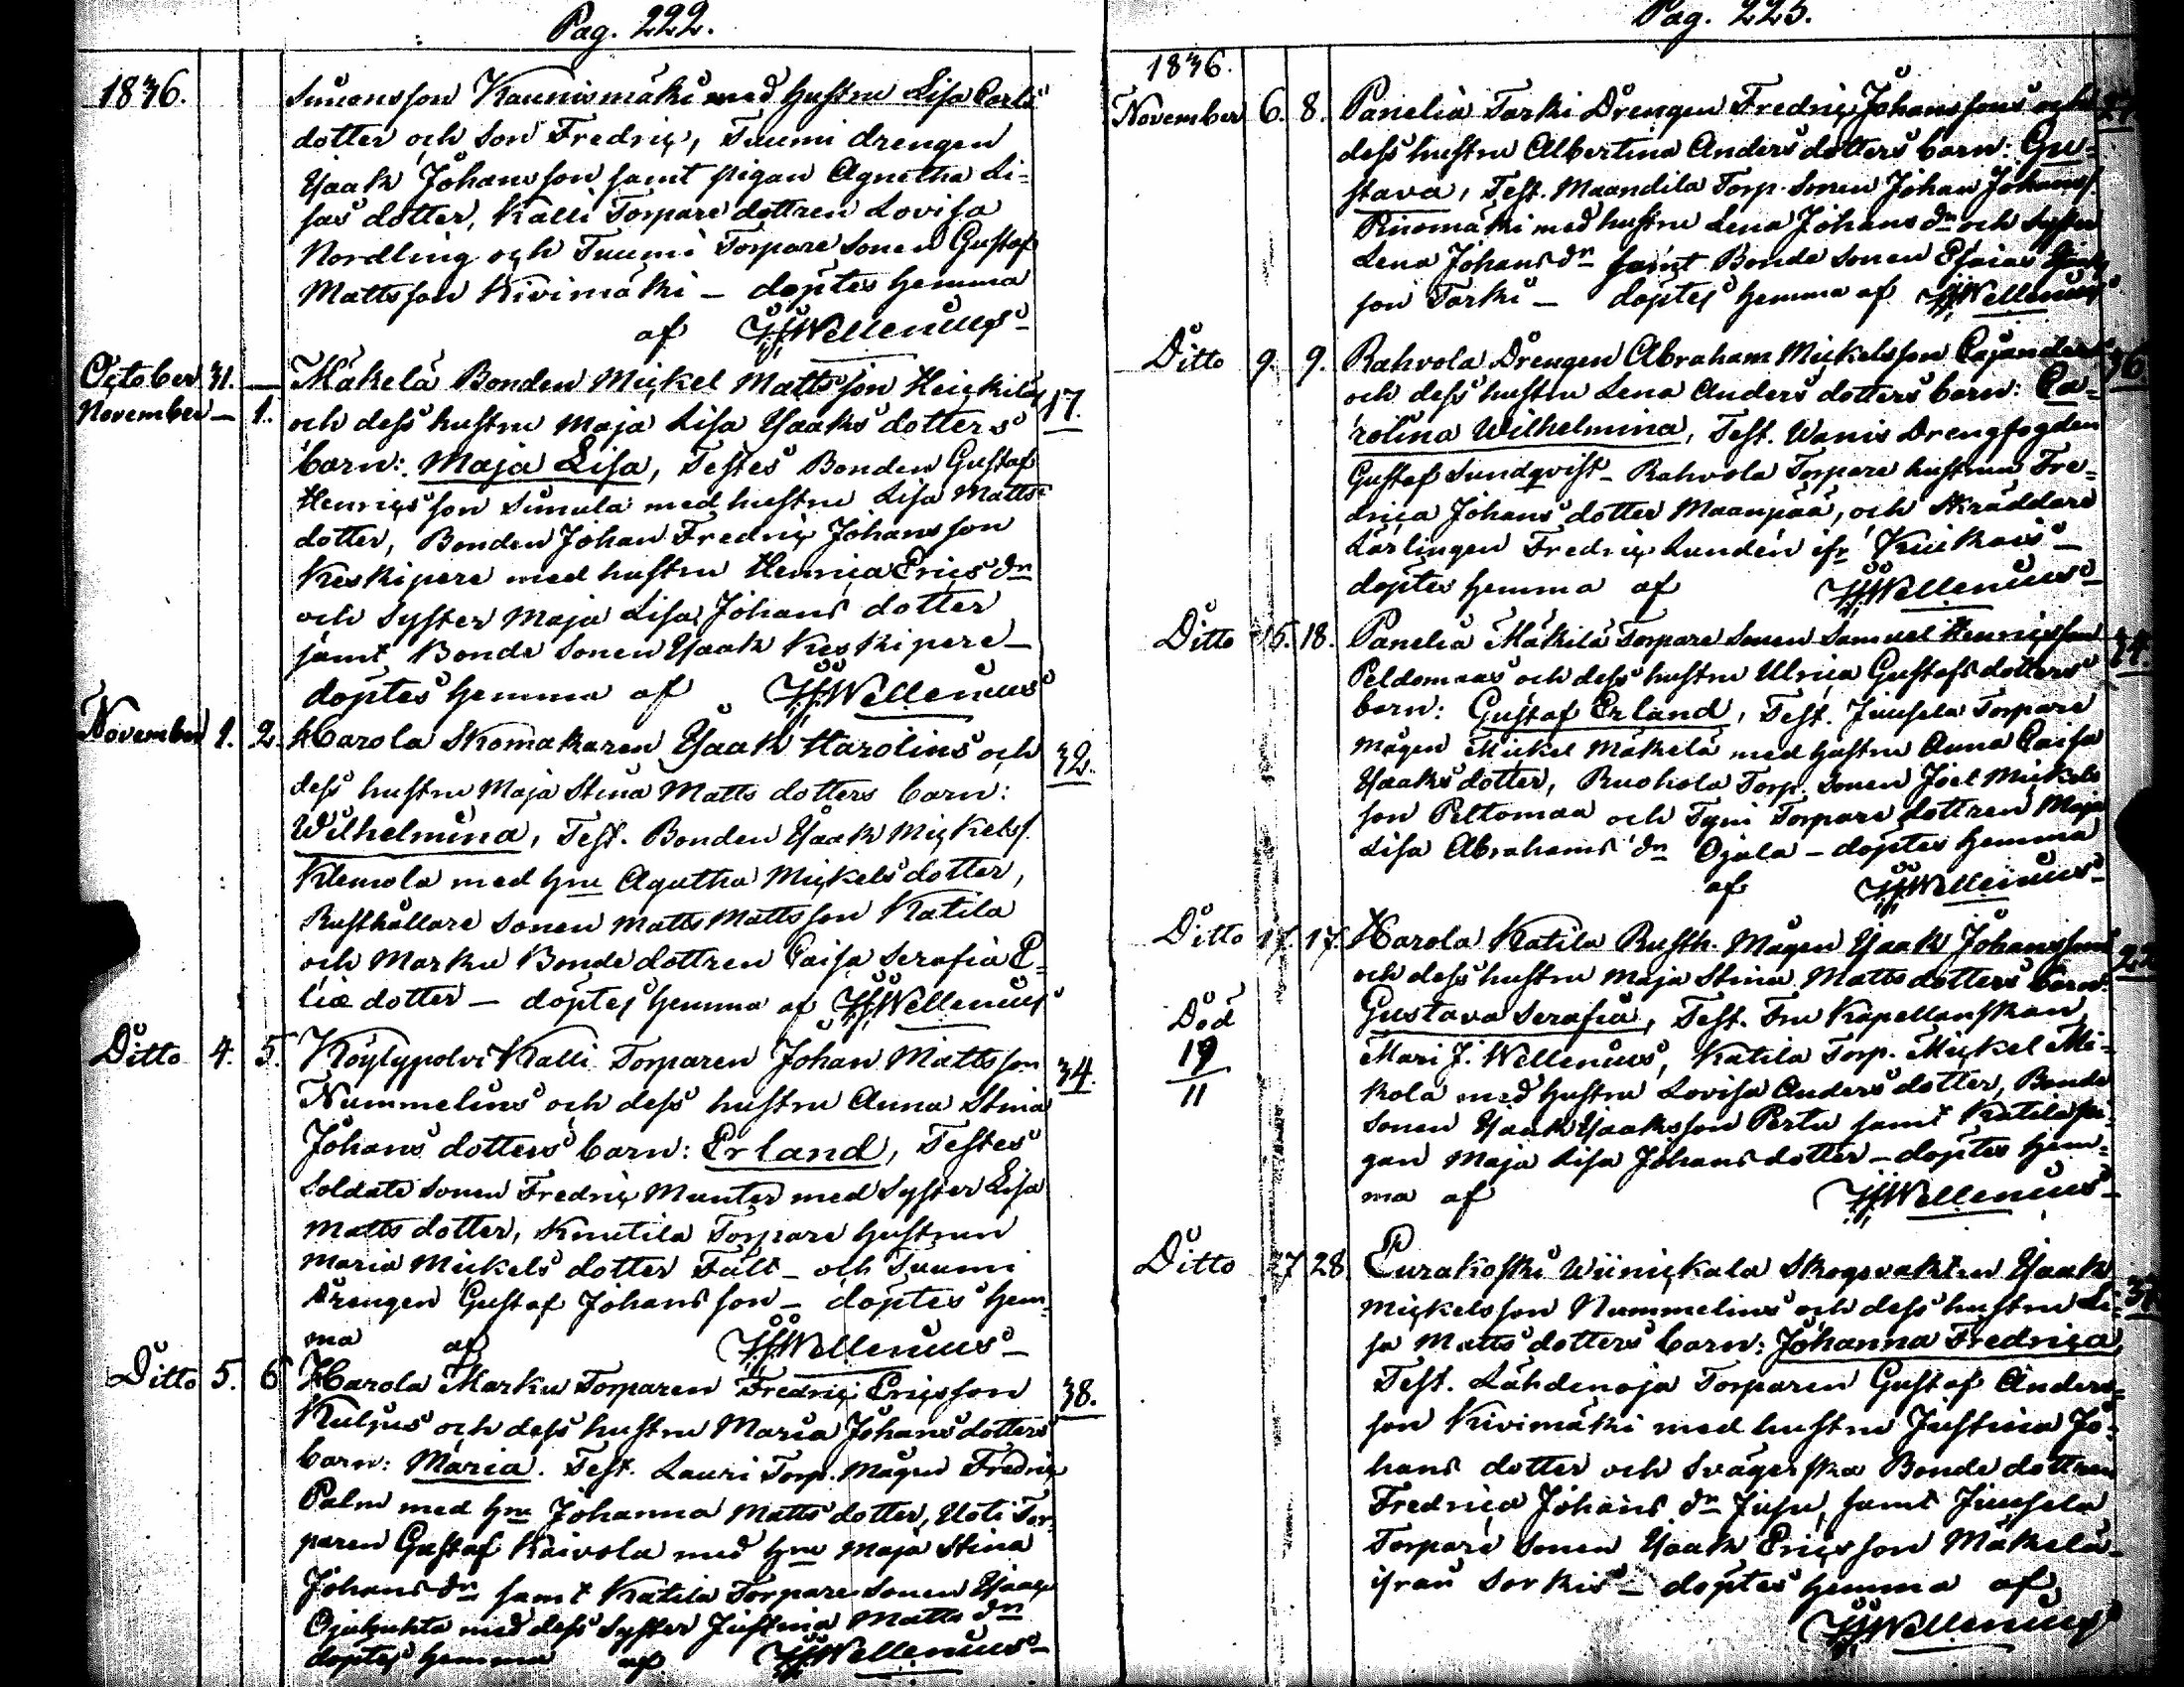 Pag. 222.
1836.
Simonsson Kaunismäki med hustru Lisa Carls
dotter och Son Fredric, Tuumi drengen
Isaak Johansson samt pigan Agnetha Li-
sas dotter, Kalli Torpare dottren Lovisa
Nordling och Tuumi Torpare Sonen Gustaf
Mattsson Kivimäki – döptes hemma
af Wellenius
October 31. –
November – 1.
Mäkelä Bonden Mickel Mattsson Heickilä
17.
och dess hustru Maja Lisa Isaaks dotters
barn: Maja Lisa, Testes Bonden Gustaf
Henricsson Simula med hustru Lisa Matts
dotter, Bonden Johan Fredric Johansson
Keskipere med hustru Henrica Erics dr
och Syster Maja Lisa Johans dotter
samt Bonde Sonen Isaak Keskipere –
döptes hemma af Wellenius
November 1. 2.
Harola Skomakaren Isaak Harolins och
32.
dess hustru Maja Stina Matts dotters barn:
Wilhelmina, Test. Bonden Isaak Mickelss.
Klemola med hru Agatha Mickels dotter,
Rusthållare Sonen Matts Mattsson Katila
och Marku Bonde dottren Caisa Serafia E-
liæ dotter – döptes hemma af Wellenius
Ditto 4. 5.
Köylypolvi Kalli Torparen Johan Mattsson
34.
Nummelins och dess hustru Anna Stina
Johans dotters barn: Erland, Testes
Soldate Sonen Fredric Munter med Syster Lisa
Matts dotter, Knutila Torpare hustrun
Maria Mickels dotter Fält – och Tuumi
Drengen Gustaf Johansson – döptes hem-
ma af Wellenius
Ditto 5. 6
Harola Marku Torparen Fredric Ericsson
38.
Kuljus och dess hustru Maria Johans dotters
barn: Maria. Test. Lauri Torp. Mågen Fredric
Palm med hru Johanna Matts dotter, Uoti Tor-
paren Gustaf Raivola med hru Maja Stina
Johans dr samt Katila Torpare Sonen Isaac
Ojakukta med dess Syster Justina Matts dr
döptes hemma af Wellenius
Pag. 223.
1836.
November 6. 8.
Panelia Tarki Drengen Fredric Johanssons och
dess hustru Albertina Anders dotters barn: Gu-
stava, Test. Maandila Torp. Sonen Johan Johanss.
med hustru Lena Johans dr och Syster
Lena Johans dr samt Bonde Sonen Esaias
son Tarki – döptes hemma af Wellenius
Ditto 9. 9.
Rahvola Drengen Abraham Mickelsson Cajanders
36.
och dess hustru Lena Anders dotters barn: Ca-
rolina Wilhelmina, Test. Wanis Drengfogden
Gustaf Sundqvist – Rahvola Torpare hustrun Fre-
drica Johans dotter Maanpää, och Skräddare
Lärlingen Fredric Lundén ifr Kiukais –
döptes hemma af Wellenius
Ditto 16. 18.
Panelia Mäkilä Torpare Sonen Samuel Henricsson
34.
Peldomaas och dess hustru Ulrica Gustafs dotters
barn: Gustaf Erland, Test. Juusela Torpare
Mågen Mickel Mäkelä med hustru Anna Caisa
Isaaks dotter, Ruohola Torp. Sonen Joel Mickels
son Peltomaa och Tyni Torpare dottren Maja
Lisa Abrahams dr Ojala – döptes hemma
af Wellenius
Ditto 17. 17.
Harola Katila Rusth. Mågen Isaak Johanssons
22
och dess hustru Maja Stina Matts dotters barn:
Död
19
11
Gustava Serafia, Test. Fru Kapellanskan
Mari J. Wellenius, Katila Torp. Mickel Mi-
kola med hustru Lovisa Anders dotter, Bonde
Sonen Isaak Isaaksson Pertu samt Katila pi-
gan Maja Lisa Johans dotter – döptes hem-
ma af Wellenius
Ditto 17 28.
Eurakoski Wiinickala Skogvakten Isaak
Mickelsson Nummelins och dess hustru Li-
sa Matts dotters barn: Johanna Fredrica,
Test. Lähdenoja Torparen Gustaf Anders-
son Kivimäki med hustru Justina Jo-
hans dotter och Svägerska Bonde dottren
Fredrica Johans dr Jusu, samt Juusela
Torpare Sonen Isaak Ericsson Mäkelä
ifrån Sorkis – döptes hemma af
Wellenius